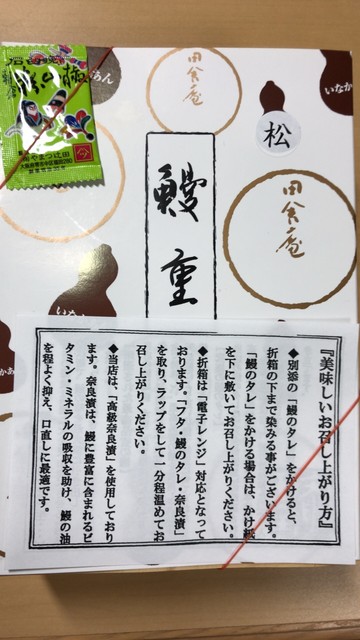 田舎庵
いなか
松
田舎庵
鰻重
『美味しいお召し上がり方』
◆別添の「鰻のタレ」をかけると、
折箱の下まで染みる事がございます。
「鰻のタレ」をかける場合は、かけ紙
を下に敷いてお召し上がりください。
◆折箱は「電子レンジ」対応となって
おります。「フタ・鰻のタレ・奈良漬」
を取り、ラップをして一分程温めてお
召し上がりください。
◆当店は、「高級奈良漬」を使用しており
ます。奈良漬は、鰻に豊富に含まれるビ
タミン・ミネラルの吸収を助け、鰻の油
を程よく抑え、口直しに最適です。